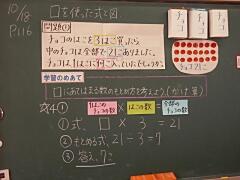 10/8
P.116
□を使った式と図
問題①
チョコのはこを3はこ買ったら、
中のチョコは全部で21こありました。
チョコは1はこに何こ入っていたでしょうか。
チョコ
チョコ
チョコ
チョコ21こ
学習のめあて
□にあてはまる数のもとめ方を考えよう(かけ算)
1はこのチョコの数 × はこの数 = 全部のチョコの数
①式 □×3=21
②もとめる式 21÷3=7
③答え 7こ